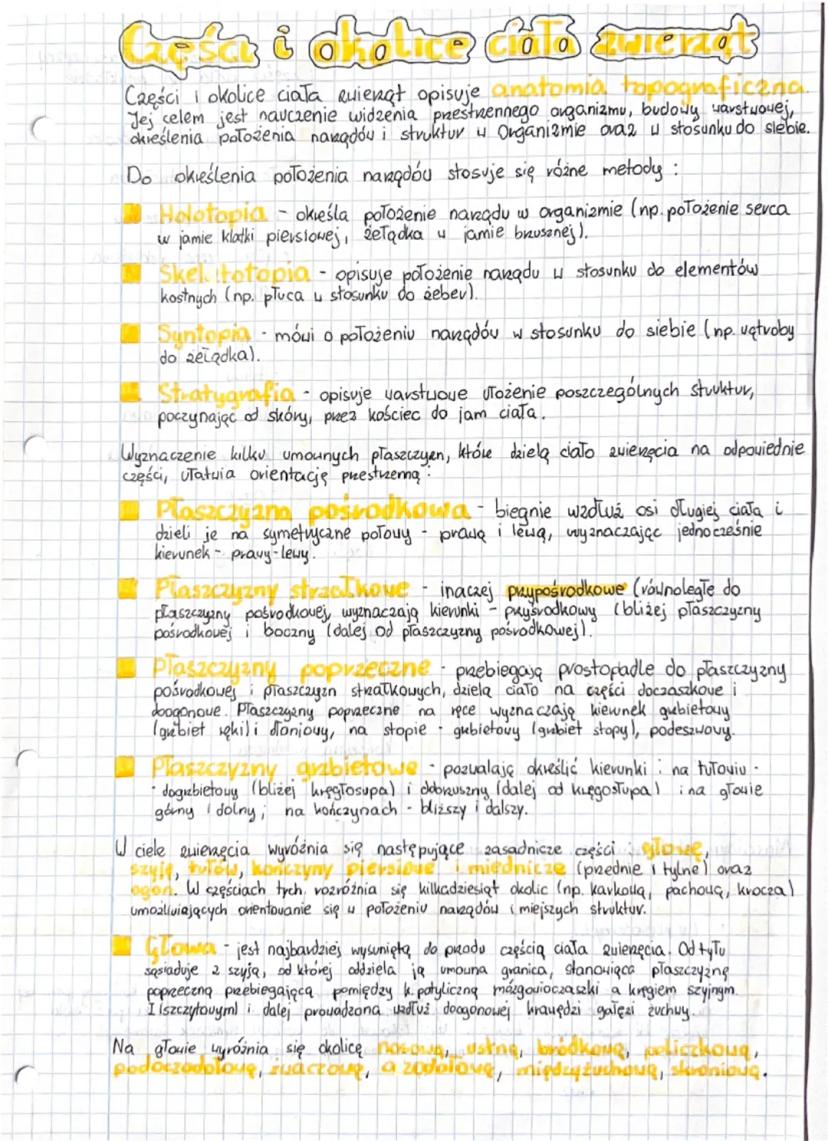 Części i okolice ciała zwierząt
Części i okolice ciała zwierząt opisuje anatomia topograficzna.
Jej celem jest nauczenie widzenia przestrzennego organizmu, budowy warstwowej,
określenia położenia narządów i struktur w Organizmie oraz w stosunku do siebie.
Do określenia położenia narządów stosuje się różne metody :
Holotopia - określa położenie narządu w organizmie (np. położenie serca
w jamie klatki piersiowej, żołądka w jamie brzusznej).
Skeletotopia - opisuje położenie narządu w stosunku do elementów
kostnych (np. płuca w stosunku do żeber).
Syntopia - mówi o położeniu narządów w stosunku do siebie (np. wątroby
do żołądka).
Stratygrafia - opisuje warstwowe ułożenie poszczególnych struktur,
poczynając od skóry, przez kościec do jam ciała.
Wyznaczenie kilku umownych płaszczyzn, które dzielą ciało zwierzęcia na odpowiednie
części, ułatwia orientację przestrzenną :
Płaszczyzna pośrodkowa - biegnie wzdłuż osi długiej ciała i
dzieli je na symetryczne połowy - prawą i lewą, wyznaczając jednocześnie
kierunek - prawy-lewy.
Płaszczyzny strzałkowe - inaczej przypośrodkowe (równoległe do
płaszczyzny pośrodkowej, wyznaczają kierunki - przyśrodkowy (bliżej płaszczyzny
pośrodkowej i boczny (dalej od płaszczyzny pośrodkowej).
Płaszczyzny poprzeczne - przebiegają prostopadle do płaszczyzny
pośrodkowej i płaszczyzn strzałkowych, dzielą ciało na części doczaszkowe i
doogonowe. Płaszczyzny poprzeczne na ręce wyznaczają kierunek grzbietowy
(grzbiet ręki) i dłoniowy, na stopie - grzbietowy (grzbiet stopy), podeszwowy.
Płaszczyzny grzbietowe - pozwalają określić kierunki : na tułowiu -
- dogrzbietowy (bliżej kręgosłupa) i dobrzuszny (dalej od kręgosłupa) i na głowie
górny i dolny; na kończynach - bliższy i dalszy.
W ciele zwierzęcia wyróżnia się następujące zasadnicze części : głowę,
szyję, tułów, kończyny piersiowe i miednicze (przednie i tylne) oraz
ogon. W częściach tych rozróżnia się kilkadziesiąt okolic (np. karkową, pachową, kroczą)
umożliwiających orientowanie się w położeniu narządów i miejszych struktur.
Głowa - jest najbardziej wysuniętą do przodu częścią ciała zwierzęcia. Od tyłu
sąsiaduje z szyją, od której oddziela ją umowna granica, stanowiąca płaszczyznę
poprzeczną przebiegającą pomiędzy k. potyliczną mózgowioczaszki a kręgiem szyjnym.
I (szczytowym) i dalej prowadzona wzdłuż doogonowej krawędzi gałęzi żuchwy.
Na głowie wyróżnia się okolicę nosową, ustną, bródkową, policzkową,
podoczodołową, żwaczową, oczodołową, międzyżuchwową, skroniową.